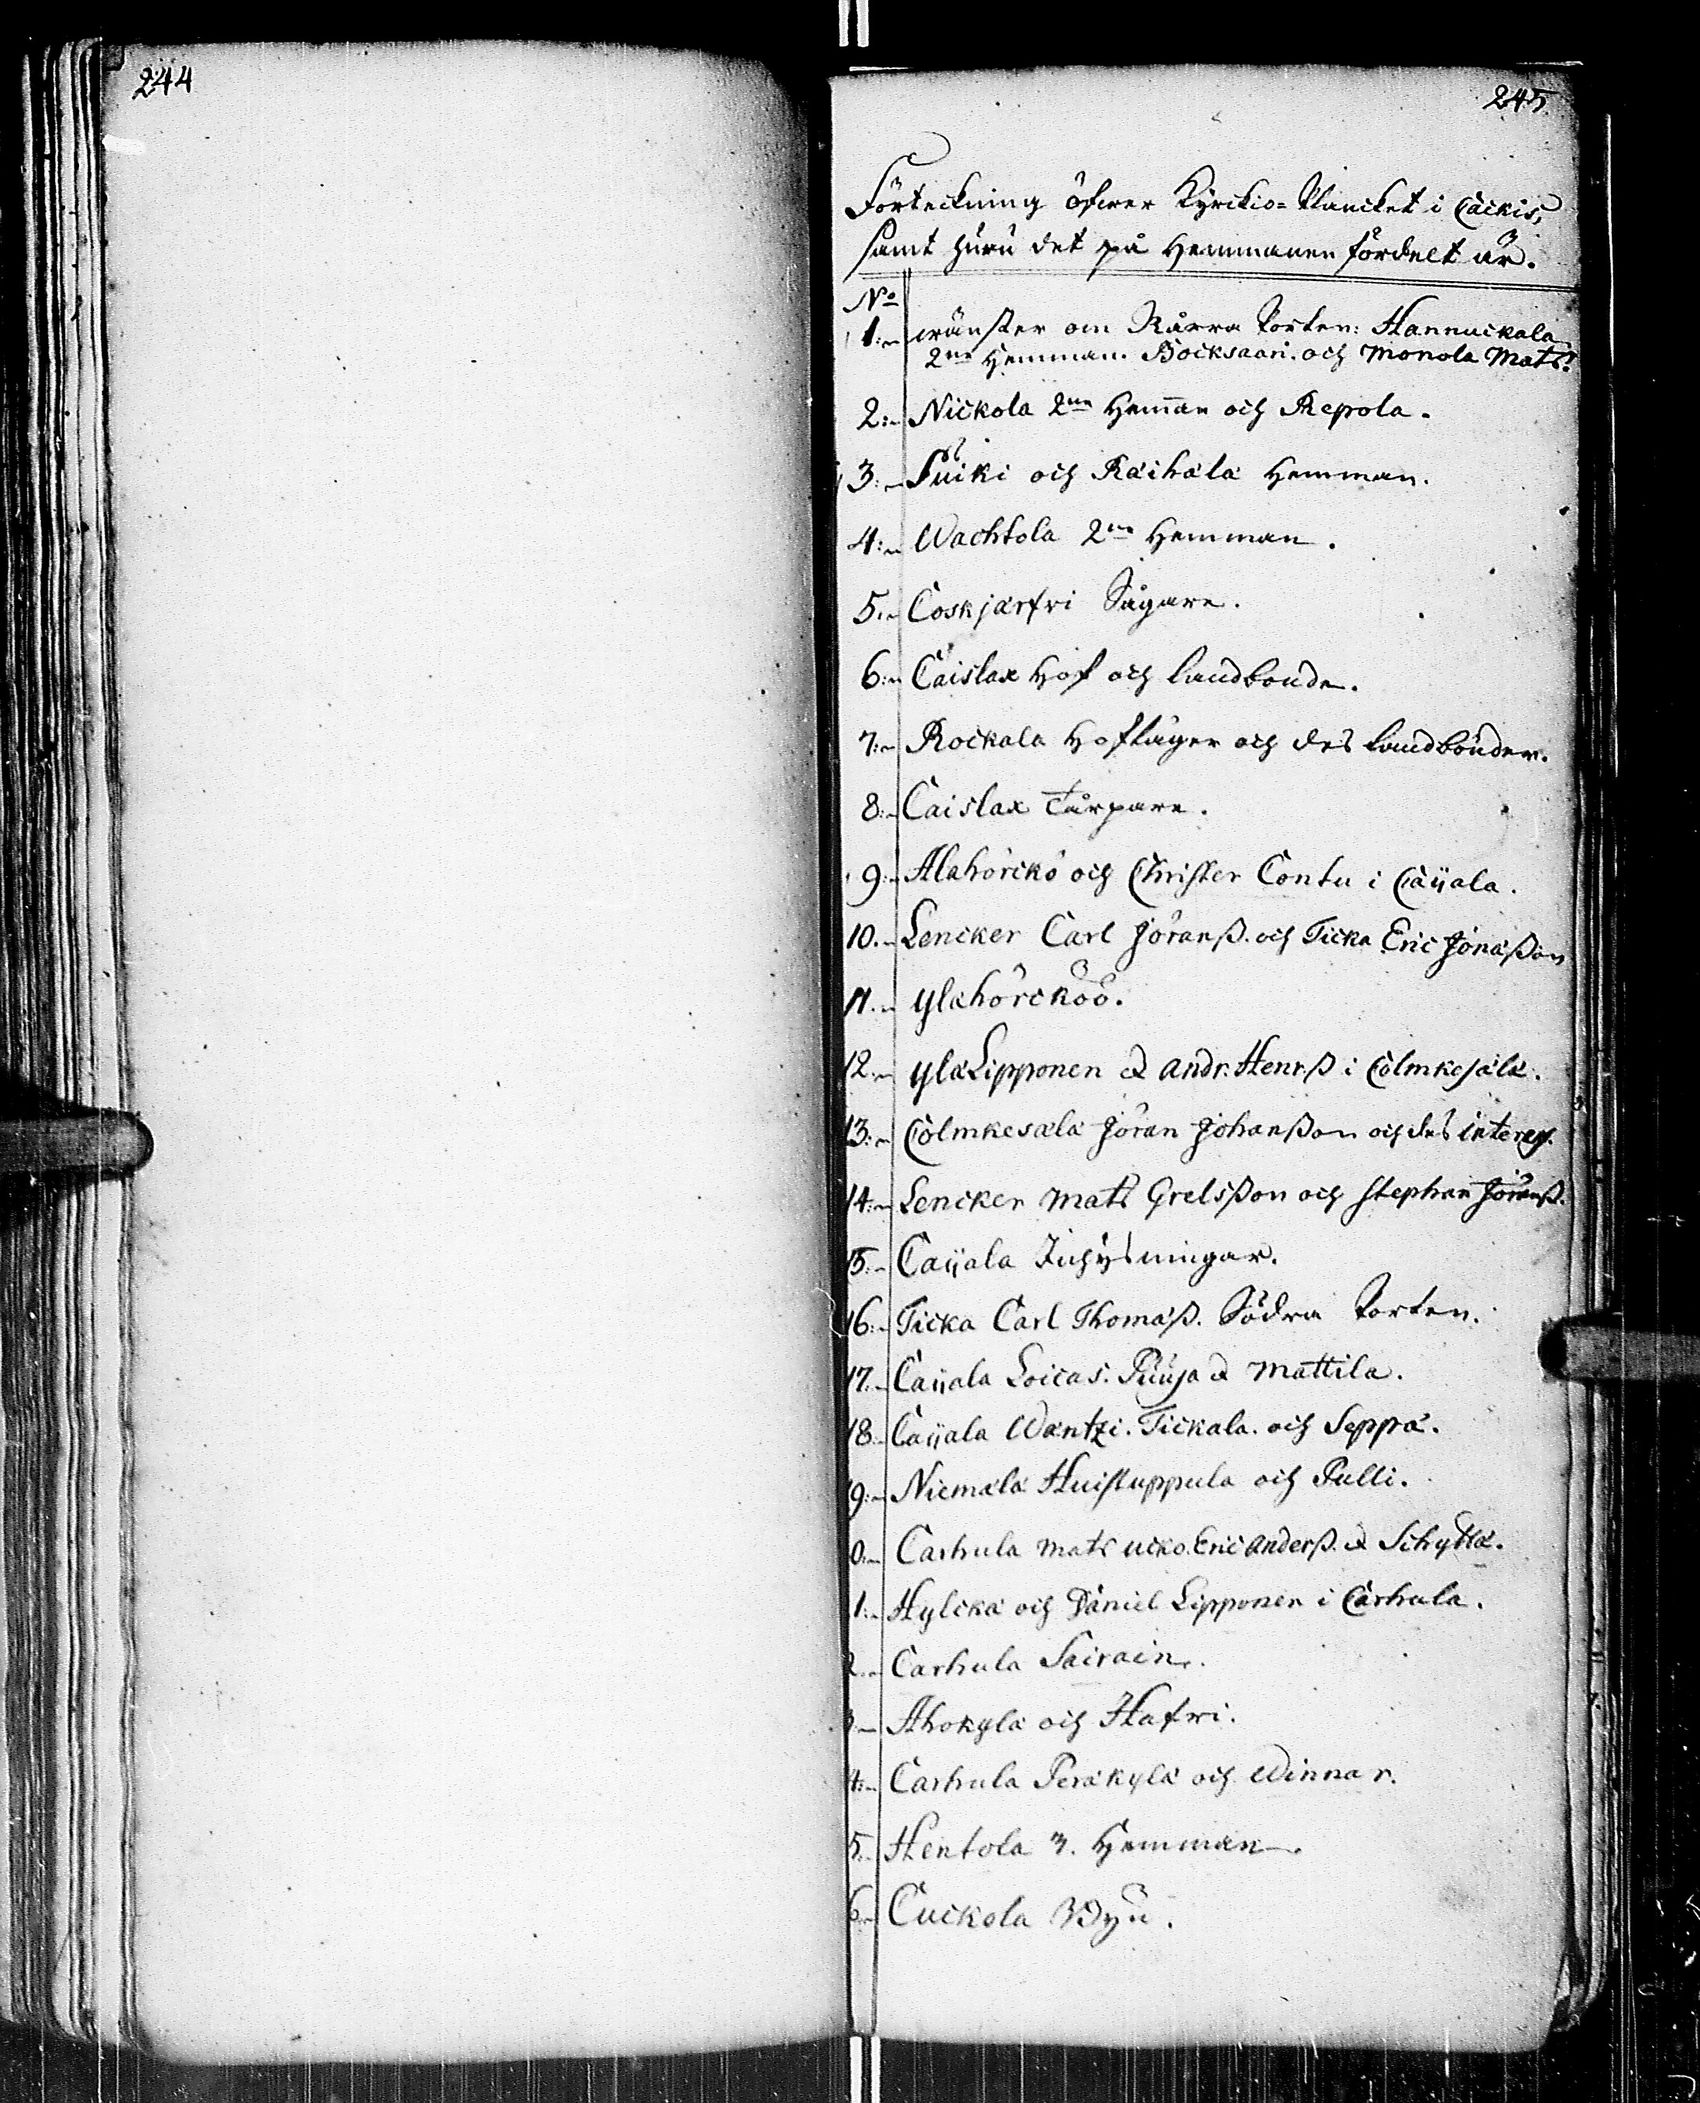 244
245.
Förteckning öfwer Kyrckio-Plancket i Cäckis,
samt huru det på Hemmanen fördelt är.
No
1:- wänster om Norra Porten: Hannuckala
2ne Hemman. Bocksaari. och Monola Mats.
2:- Nickola 2ne Heman och Repola.
3:- Suiki och Räihälä Hemman.
4:- Wachtola 2ne Hemman.
5:- Coskjärfri Sågare.
6:- Caislax Hof och landbonde.
7:- Rockala Hofläger och des landbönder.
8:- Caislax Tårpare.
9:- Alahörckö och Christer Contu i Cäÿala.
10.- Lencker Carl Jöranß. och Ticka Eric Jönäßon
11.- Ylähörcköö.
12.- Ylä Lipponen & Andr. Henr.ß i Colmkesälä.
13:- Colmkesälä Jöran Johanßon och des interess.
14:- Lencker Mats Grelsßon och Stephan Jöranß.
15:- Caÿala Inhysningar.
16:- Ticka Carl Thomaß. Södra Porten.
17.- Caÿala Loicas. Puuja & Mattila.
18.- Caÿala Wäntzi. Tickala. och Seppä.
9:- Niemälä Huistuppula och Pulli.
0:- Carhula Mats Ucko. Eric Anderß. & Schyttä.
1:- Hylckä och Daniel Lipponen i Carhula.
2.- Carhula Sairain.
3:- Ahokylä och Hafwi.
4:- Carhula Peräkylä och Winnar.
5:- Hentola 3. Hemman.
6:- Cuckola Byn.